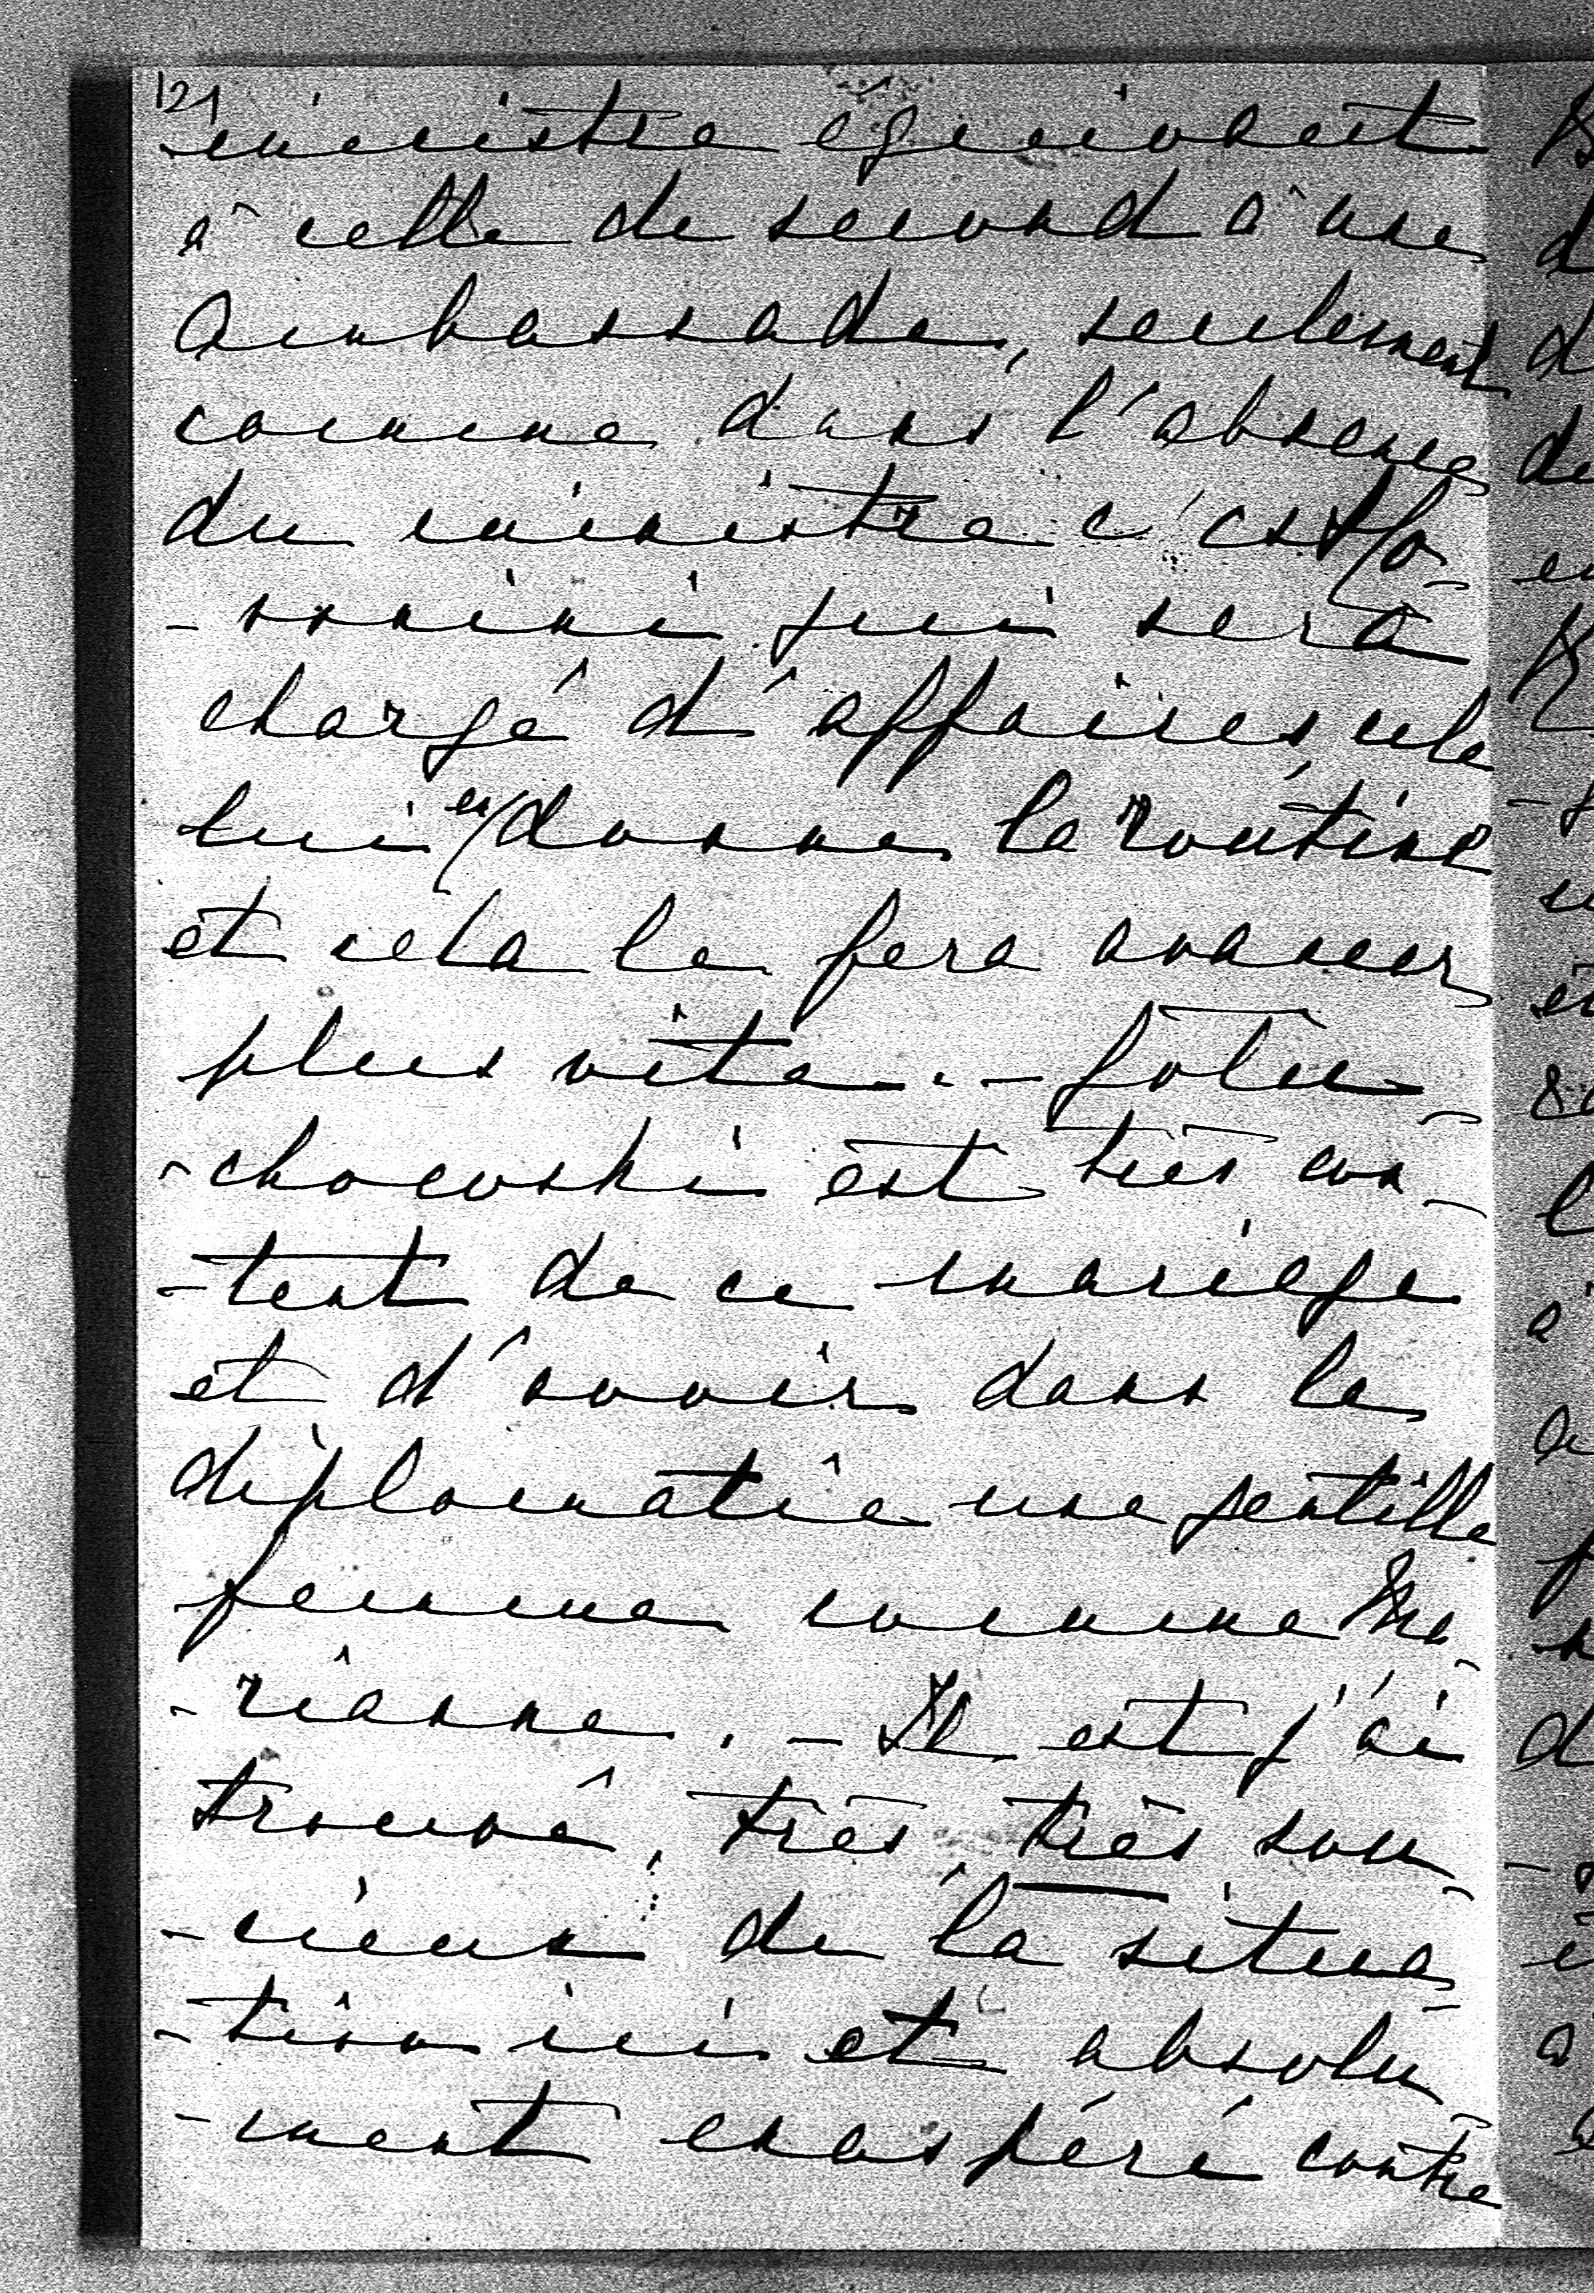 121
ministre équivaut
à celle de second à une
Ambassade, seulement
comme dans l'absence
du ministre c'est Ho-
-nnini qui sera
chargé d'affaires cela
lui en donne la routine
et cela le fera avancer
plus vite. - Golu-
-chowski est très con-
-tent de ce mariage
et d'avoir dans la
diplomatie une gentille
femme comme Ma-
-rianne. - Il est j'ai
trouvé, très, très sou-
-cieux de la situa-
-tion ici et absolu-
-ment exaspéré contre